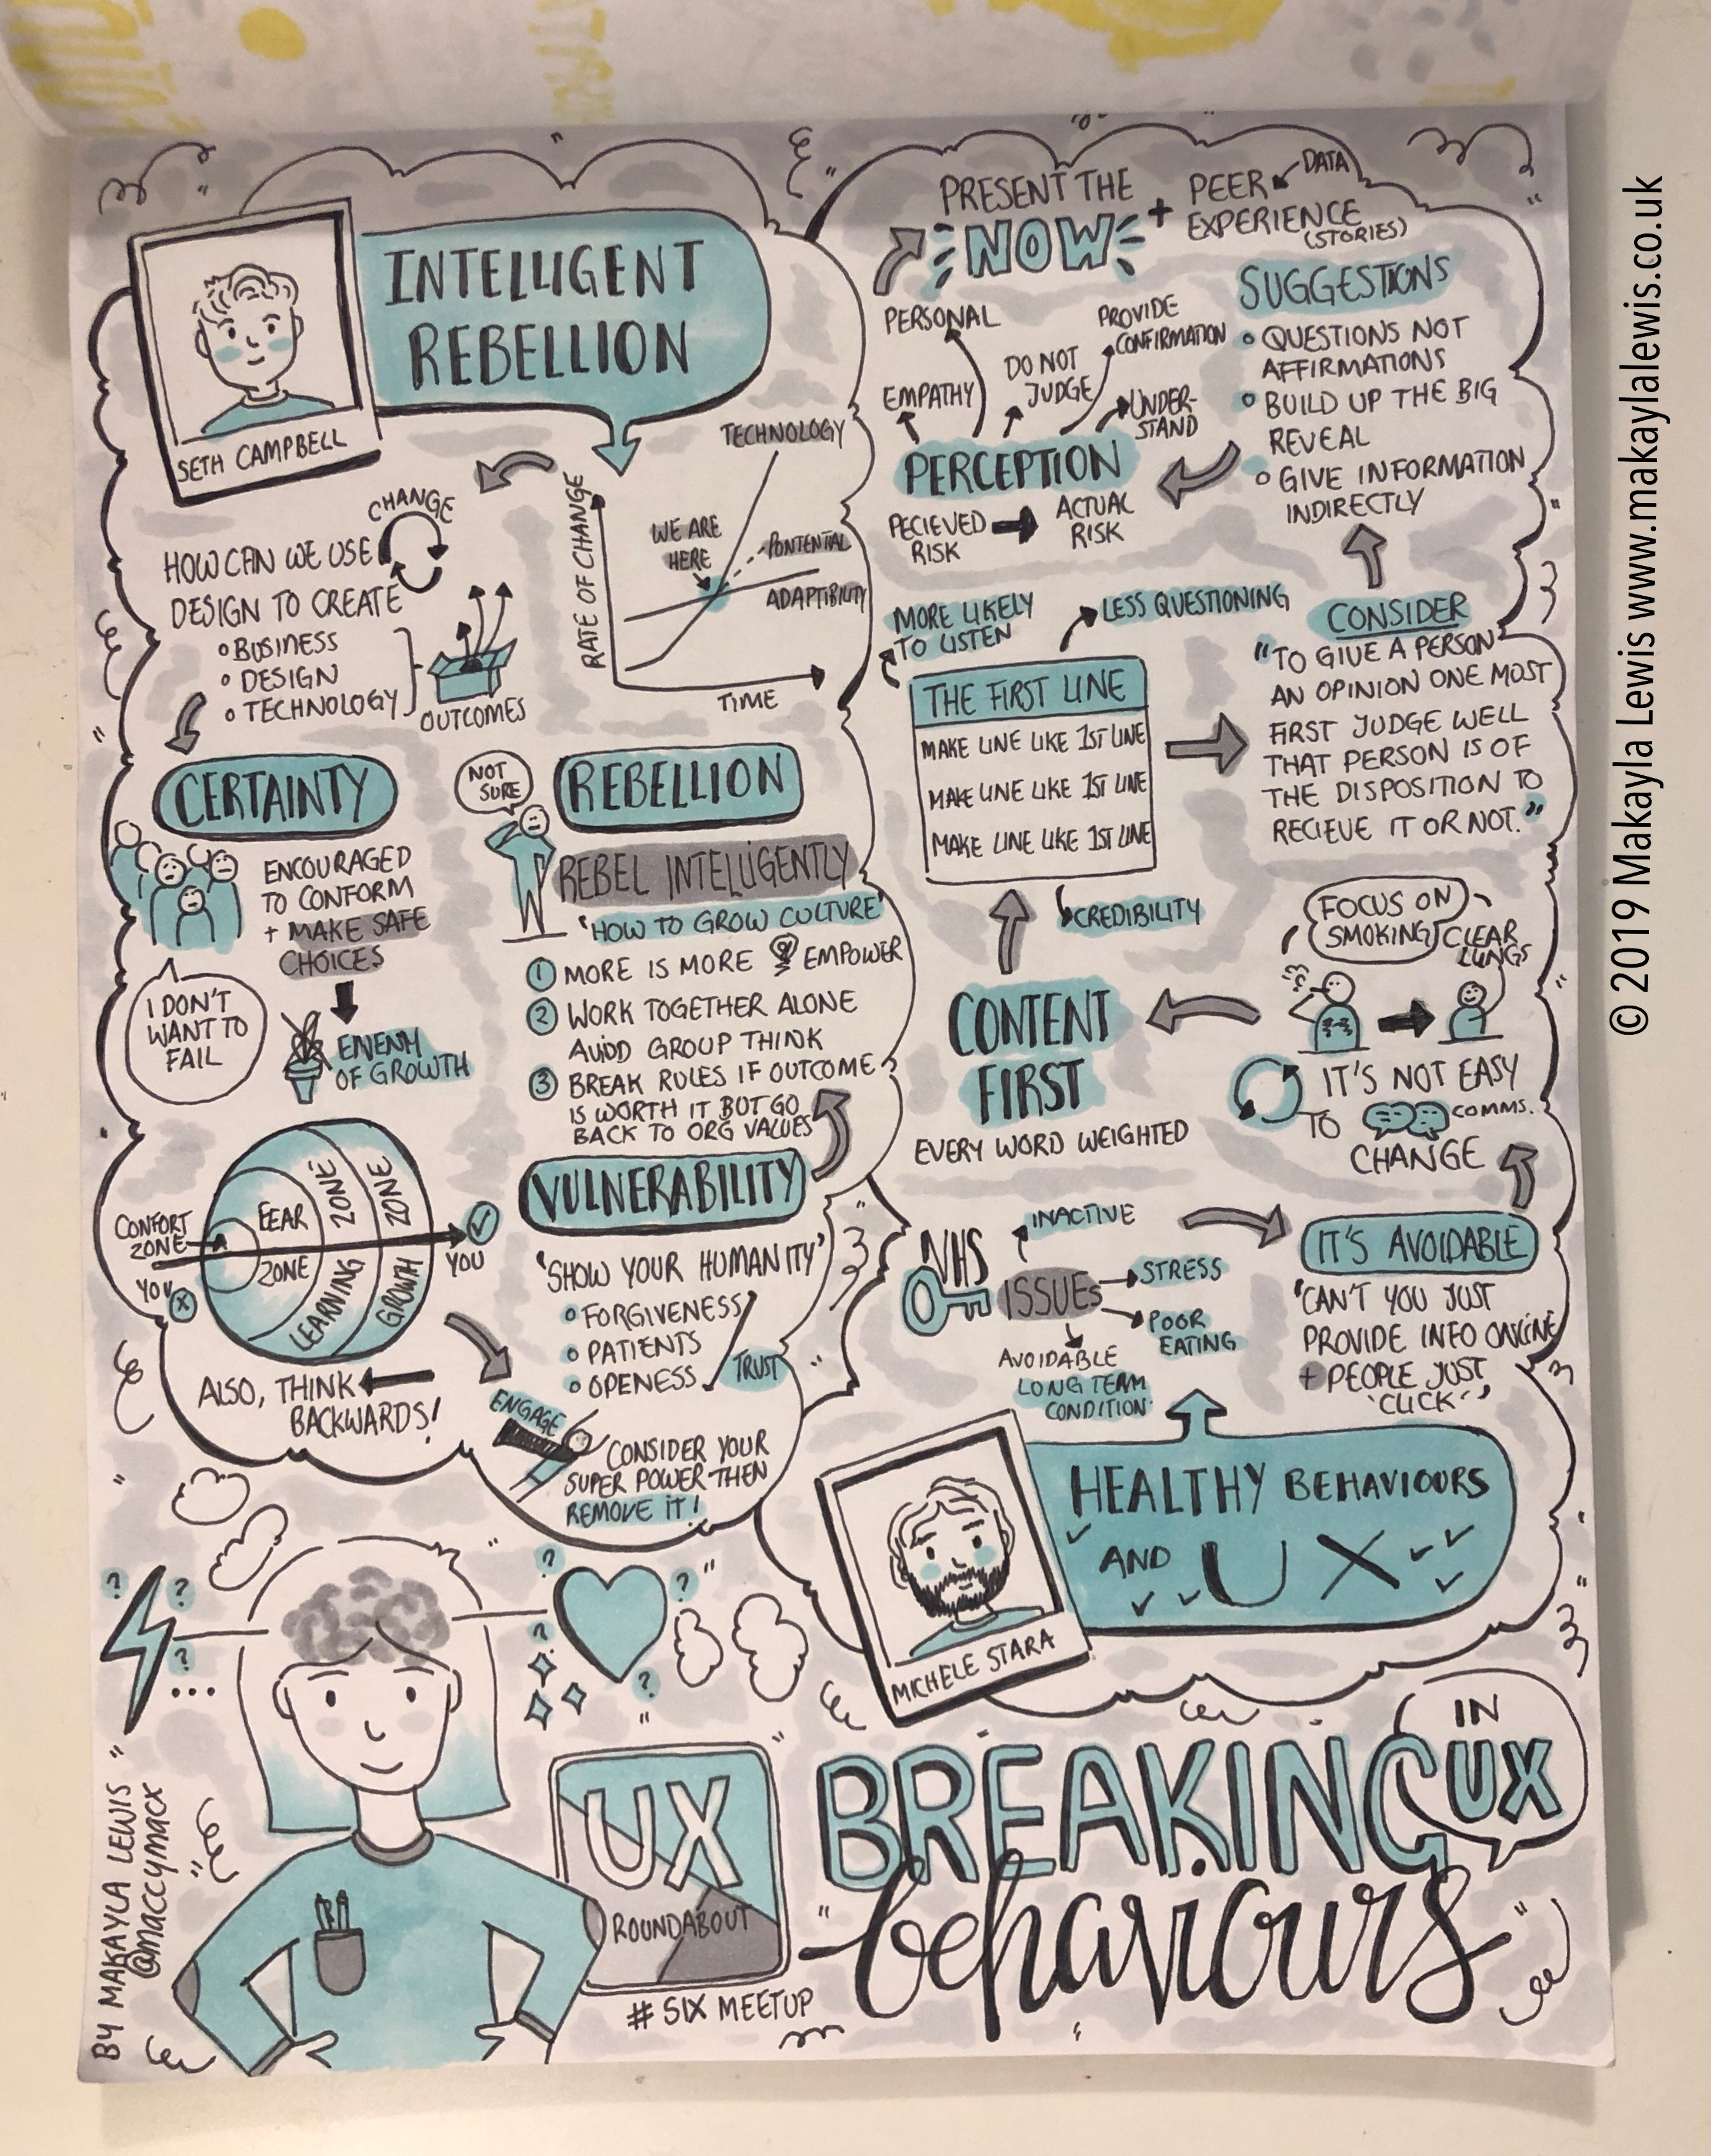 INTELLIGENT
REBELLION
SETH CAMPBELL
TECHNOLOGY
RATE OF CHANGE
WE ARE
HERE
PONTENTIAL
ADAPTIBILITY
TIME
CHANGE
HOW CAN WE USE
DESIGN TO CREATE
BUSINESS
DESIGN
TECHNOLOGY
OUTCOMES
CERTAINTY
ENCOURAGED
TO CONFORM
+ MAKE SAFE
CHOICES
I DON'T
WANT TO
FAIL
OF GROWTH
CONFORT
ZONE
YOU X
FEAR
ZONE
LEARNING
ZONE
GROWTH
ZONE
YOU
ALSO, THINK
BACKWARDS!
ENGAGE
CONSIDER YOUR
SUPER POWER THEN
REMOVE IT!
VULNERABILITY
'SHOW YOUR HUMANITY'
FORGIVENESS
PATIENTS
OPENESS
TRUST
NOT
SURE
REBELLION
REBEL INTELLIGENTLY
'HOW TO GROW CULTURE'
1 MORE IS MORE EMPOWER
2 WORK TOGETHER ALONE
AVIOD GROUP THINK
3 BREAK RULES IF OUTCOME
IS WORTH IT BUT GO
BACK TO ORG VALUES
HEALTHY BEHAVIOURS
AND UX
MICHELE STARA
NHS
ISSUES
INACTIVE
STRESS
POOR
EATING
AVOIDABLE
LONG TERM
CONDITION
IT'S AVOIDABLE
"CAN'T YOU JUST
PROVIDE INFO ONLINE
+ PEOPLE JUST
'CLICK'"
IT'S NOT EASY
TO COMMS.
CHANGE
FOCUS ON
SMOKING
CLEAR
LUNGS
CONTENT
FIRST
EVERY WORD WEIGHTED
THE FIRST LINE
MAKE LINE LIKE 1ST LINE
MAKE LINE LIKE 1ST LINE
MAKE LINE LIKE 1ST LINE
CREDIBILITY
MORE LIKELY
TO LISTEN
LESS QUESTIONING
CONSIDER
"TO GIVE A PERSON
AN OPINION ONE MOST
FIRST JUDGE WELL
THAT PERSON IS OF
THE DISPOSITION TO
RECIEVE IT OR NOT."
SUGGESTIONS
QUESTIONS NOT
AFFIRMATIONS
BUILD UP THE BIG
REVEAL
GIVE INFORMATION
INDIRECTLY
PERCEPTION
PECIEVED
RISK
ACTUAL
RISK
EMPATHY
PERSONAL
DO NOT
JUDGE
PROVIDE
CONFIRMATION
UNDER-
STAND
PRESENT THE
NOW
+ PEER
EXPERIENCE
(STORIES)
DATA
BREAKING
behaviours
IN
UX
UX
ROUNDABOUT
# SIX MEETUP
BY MAKAYLA LEWIS
@maccymacx
© 2019 Makayla Lewis www.makaylalewis.co.uk